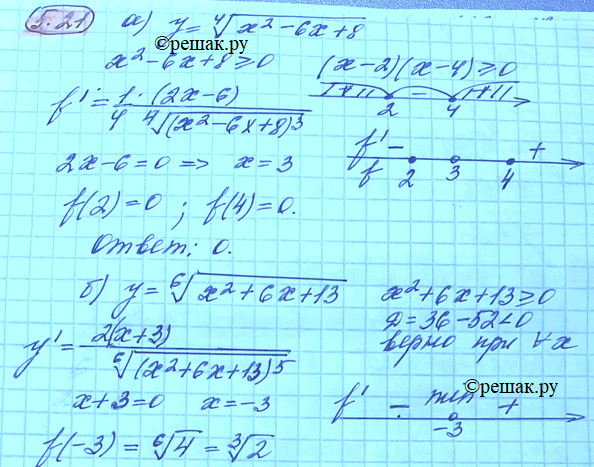 5.21 а) y = ⁴√(x² − 6x + 8)
©решак.ру
x² − 6x + 8 ≥ 0
(x − 2)(x − 4) ≥ 0
+ − +
2 4
f' = 1 · (2x − 6) / 4 ⁴√((x² − 6x + 8)³)
2x − 6 = 0 => x = 3
f' − +
f 2 3 4
f(2) = 0 ; f(4) = 0.
Ответ: 0.
б) y = ⁶√(x² + 6x + 13)
x² + 6x + 13 ≥ 0
D = 36 − 52 < 0
верно при ∀x
y' = 2(x + 3) / ⁶√((x² + 6x + 13)⁵)
x + 3 = 0 x = −3
©решак.ру
f' − min +
−3
f(−3) = ⁶√4 = ³√2